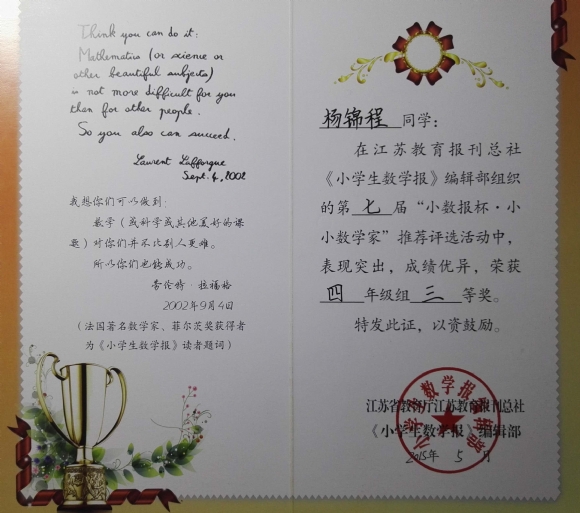 Think you can do it:
Mathematics (or science or
other beautiful subjects)
is not more difficult for you
than for other people.
So you also can succeed.
Laurent Lafforgue
Sept. 4, 2002
我想你们可以做到:
数学(或科学或其他美好的课
题)对你们并不比别人更难。
所以你们也能成功。
劳伦特·拉福格
2002年9月4日
(法国著名数学家、菲尔茨奖获得者
为《小学生数学报》读者题词)
杨锦程同学:
在江苏教育报刊总社
《小学生数学报》编辑部组织
的第七届“小数报杯·小
小数学家”推荐评选活动中,
表现突出,成绩优异,荣获
四年级组三等奖。
特发此证,以资鼓励。
江苏省教育厅江苏教育报刊总社
《小学生数学报》编辑部
2015年5月
小学生数学报编辑部